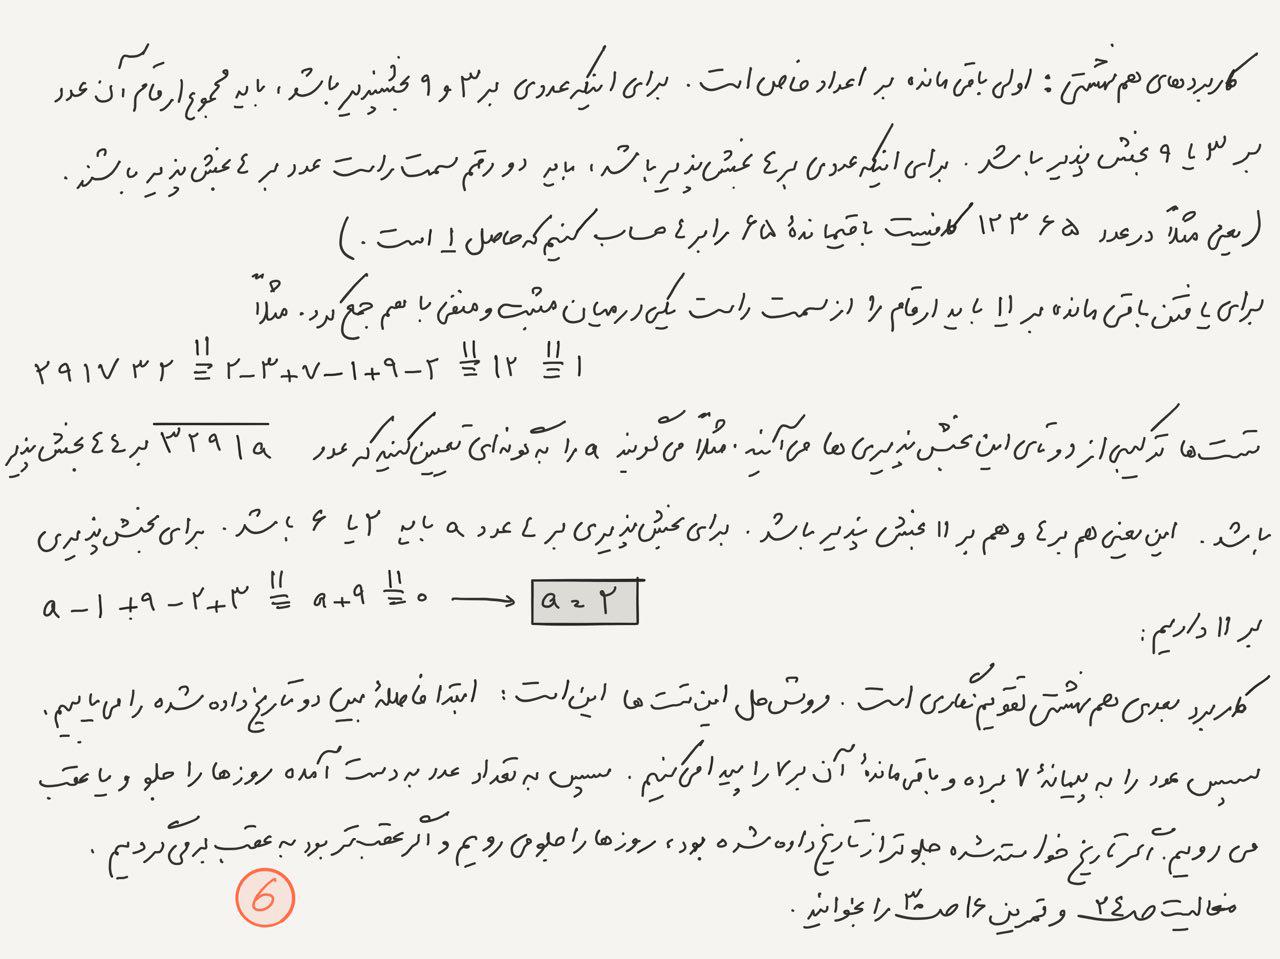 کاربردهای هم نهشتی : اولی باقی مانده بر اعداد خاص است . برای اینکه عددی بر ۳ و ۹ بخشپذیر باشد ، باید مجموع ارقام آن عدد
بر ۳ یا ۹ بخش پذیر باشد . برای اینکه عددی بر ٤ بخش پذیر باشد ، باید دو رقم سمت راست عدد بر ٤ بخش پذیر باشند .
(یعنی مثلاً در عدد ۱۲۳۶۵ کافیست باقیماندهٔ ۶۵ را بر ٤ حساب کنیم که حاصل ۱ است . )
برای یافتن باقی مانده بر ۱۱ باید ارقام را از سمت راست یکی در میان مثبت و منفی با هم جمع کرد . مثلاً
۲۹۱۷۳۲ ≡¹¹ ۲-۳+۷-۱+۹-۲ ≡¹¹ ۱۲ ≡¹¹ ۱
تست ها ترکیبی از دو تای این بخش پذیری ها می آیند . مثلاً می گویند a را به گونه ای تعیین کنید که عدد ۳۲۹۱a بر ٤٤ بخش پذیر
باشد . این یعنی هم بر ٤ و هم بر ۱۱ بخش پذیر باشد . برای بخش پذیری بر ٤ عدد a باید ۲ یا ۶ باشد . برای بخش پذیری
بر ۱۱ داریم :
a-۱+۹-۲+۳ ≡¹¹ a+۹ ≡¹¹ ۰ → a = ۲
کاربرد بعدی هم نهشتی تقویم نگاری است . روش حل این تست ها این است : ابتدا فاصلهٔ بین دو تاریخ داده شده را می یابیم .
سپس عدد را به پیمانهٔ ۷ برده و باقی ماندهٔ آن بر ۷ را پیدا می کنیم . سپس به تعداد عدد به دست آمده روزها را جلو و یا عقب
می رویم . اگر تاریخ خواسته شده جلوتر از تاریخ داده شده بود ، روزها را جلو می رویم و اگر عقب تر بود به عقب برمی گردیم .
فعالیت ص ۲٤ و تمرین ۱۶ ص ۳۰ را بخوانید .
6